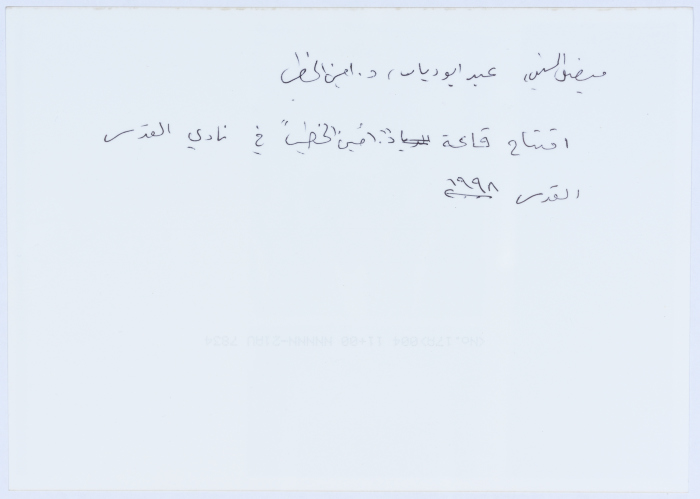 فيصل الحسيني، عبد ابو دياب، د. امين الخطيب
افتتاح قاعة "د. امين الخطيب" في نادي القدس
القدس ١٩٩٨